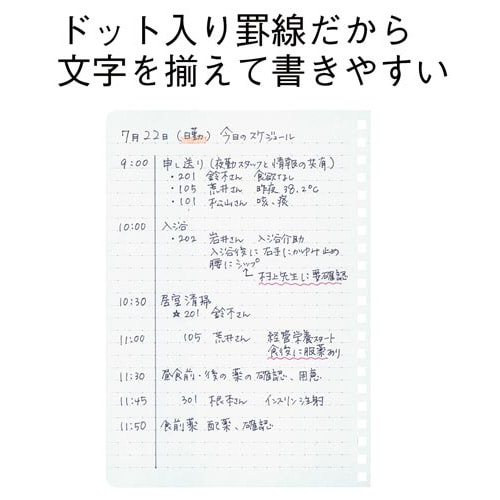 ドット入り罫線だから
文字を揃えて書きやすい
7月22日(日勤) 今日のスケジュール
9:00 申し送り(夜勤スタッフと情報の共有)
・201 鈴木さん 食欲なし
・105 荒井さん 昨夜38.2℃
・101 松山さん 咳・痰
10:00 入浴
・202 岩井さん 入浴介助
入浴後に右手にかゆみ止め
腰にシップ
村上先生に要確認
10:30 居室清掃
☆201 鈴木さん
11:00 105 荒井さん 経管栄養スタート
食後に服薬あり
11:30 昼食前・後の薬の確認、用意
11:45 301 根本さん インスリン注射
11:50 食前薬 配薬、確認